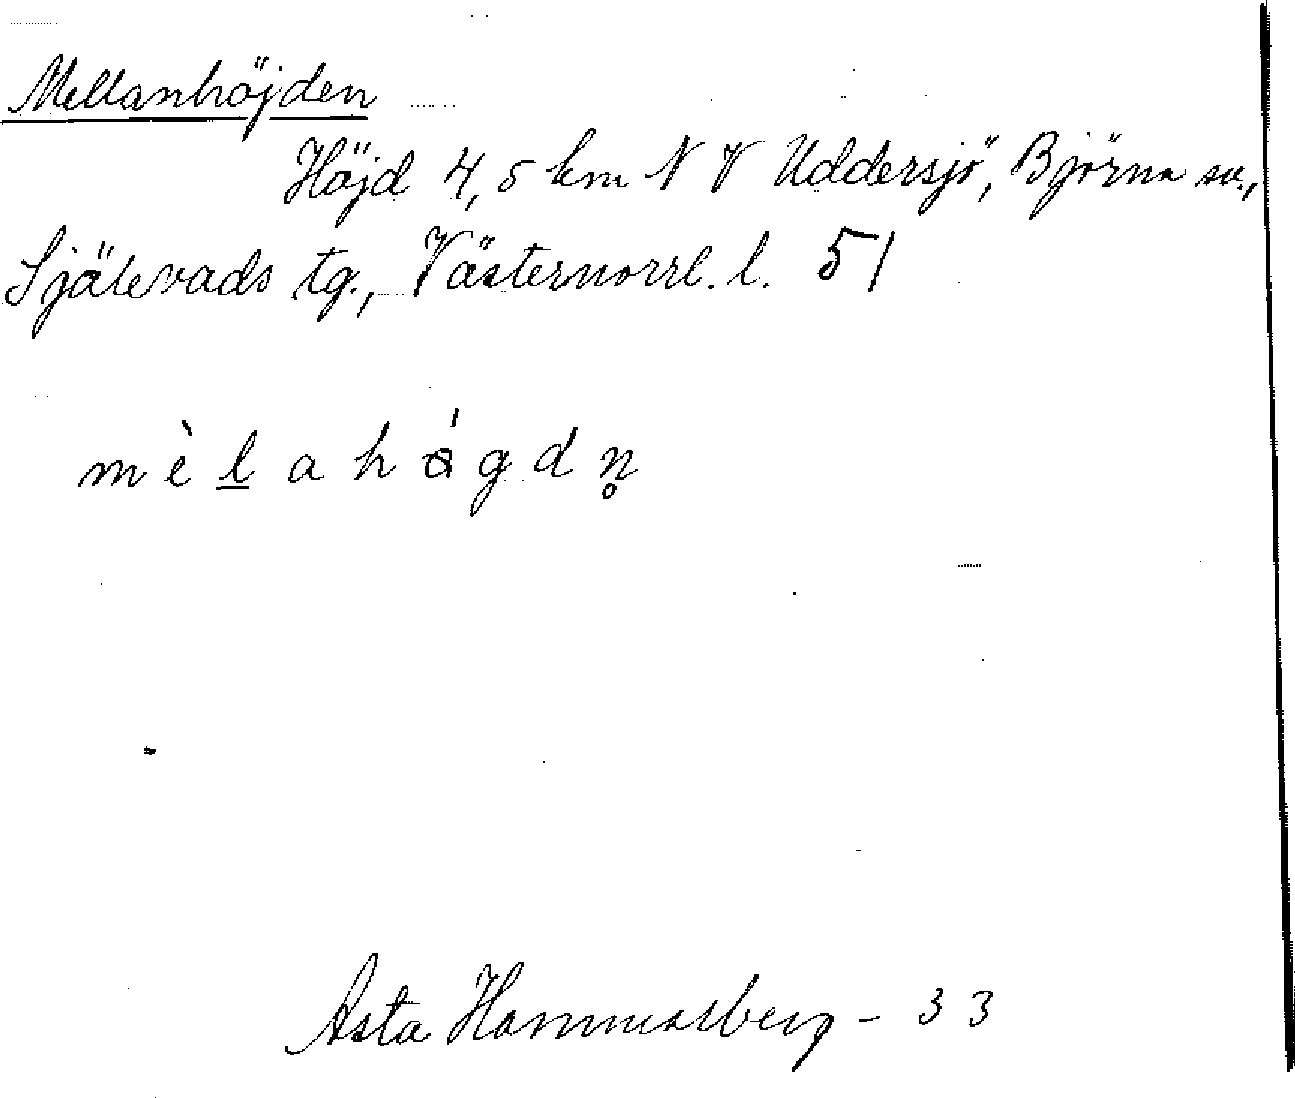 Mellanhöjden
Höjd 4,5 km N V Uddersjö, Björna sn.,
Själevads tg., Västernorrl. l. 51
m è l a h ǿ g d n̥
Asta Hammarberg - 33